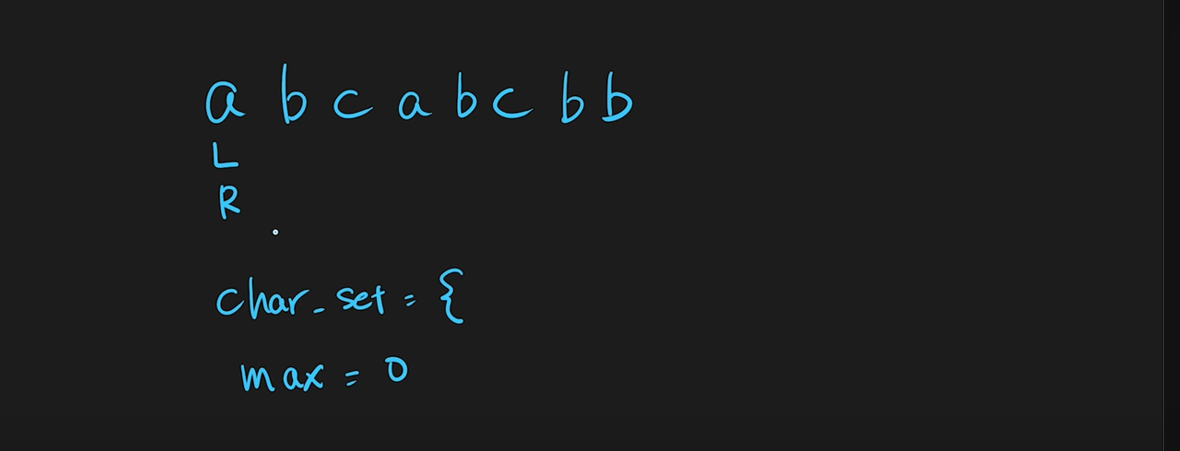 a b c a b c b b
L
R
char_set = {
max = 0